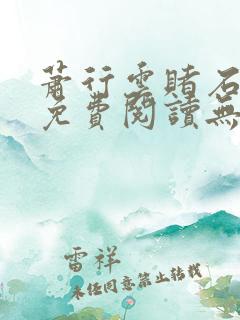 蕭行雲賭石
免費閱讀無
雷祥
未經同意禁止轉載